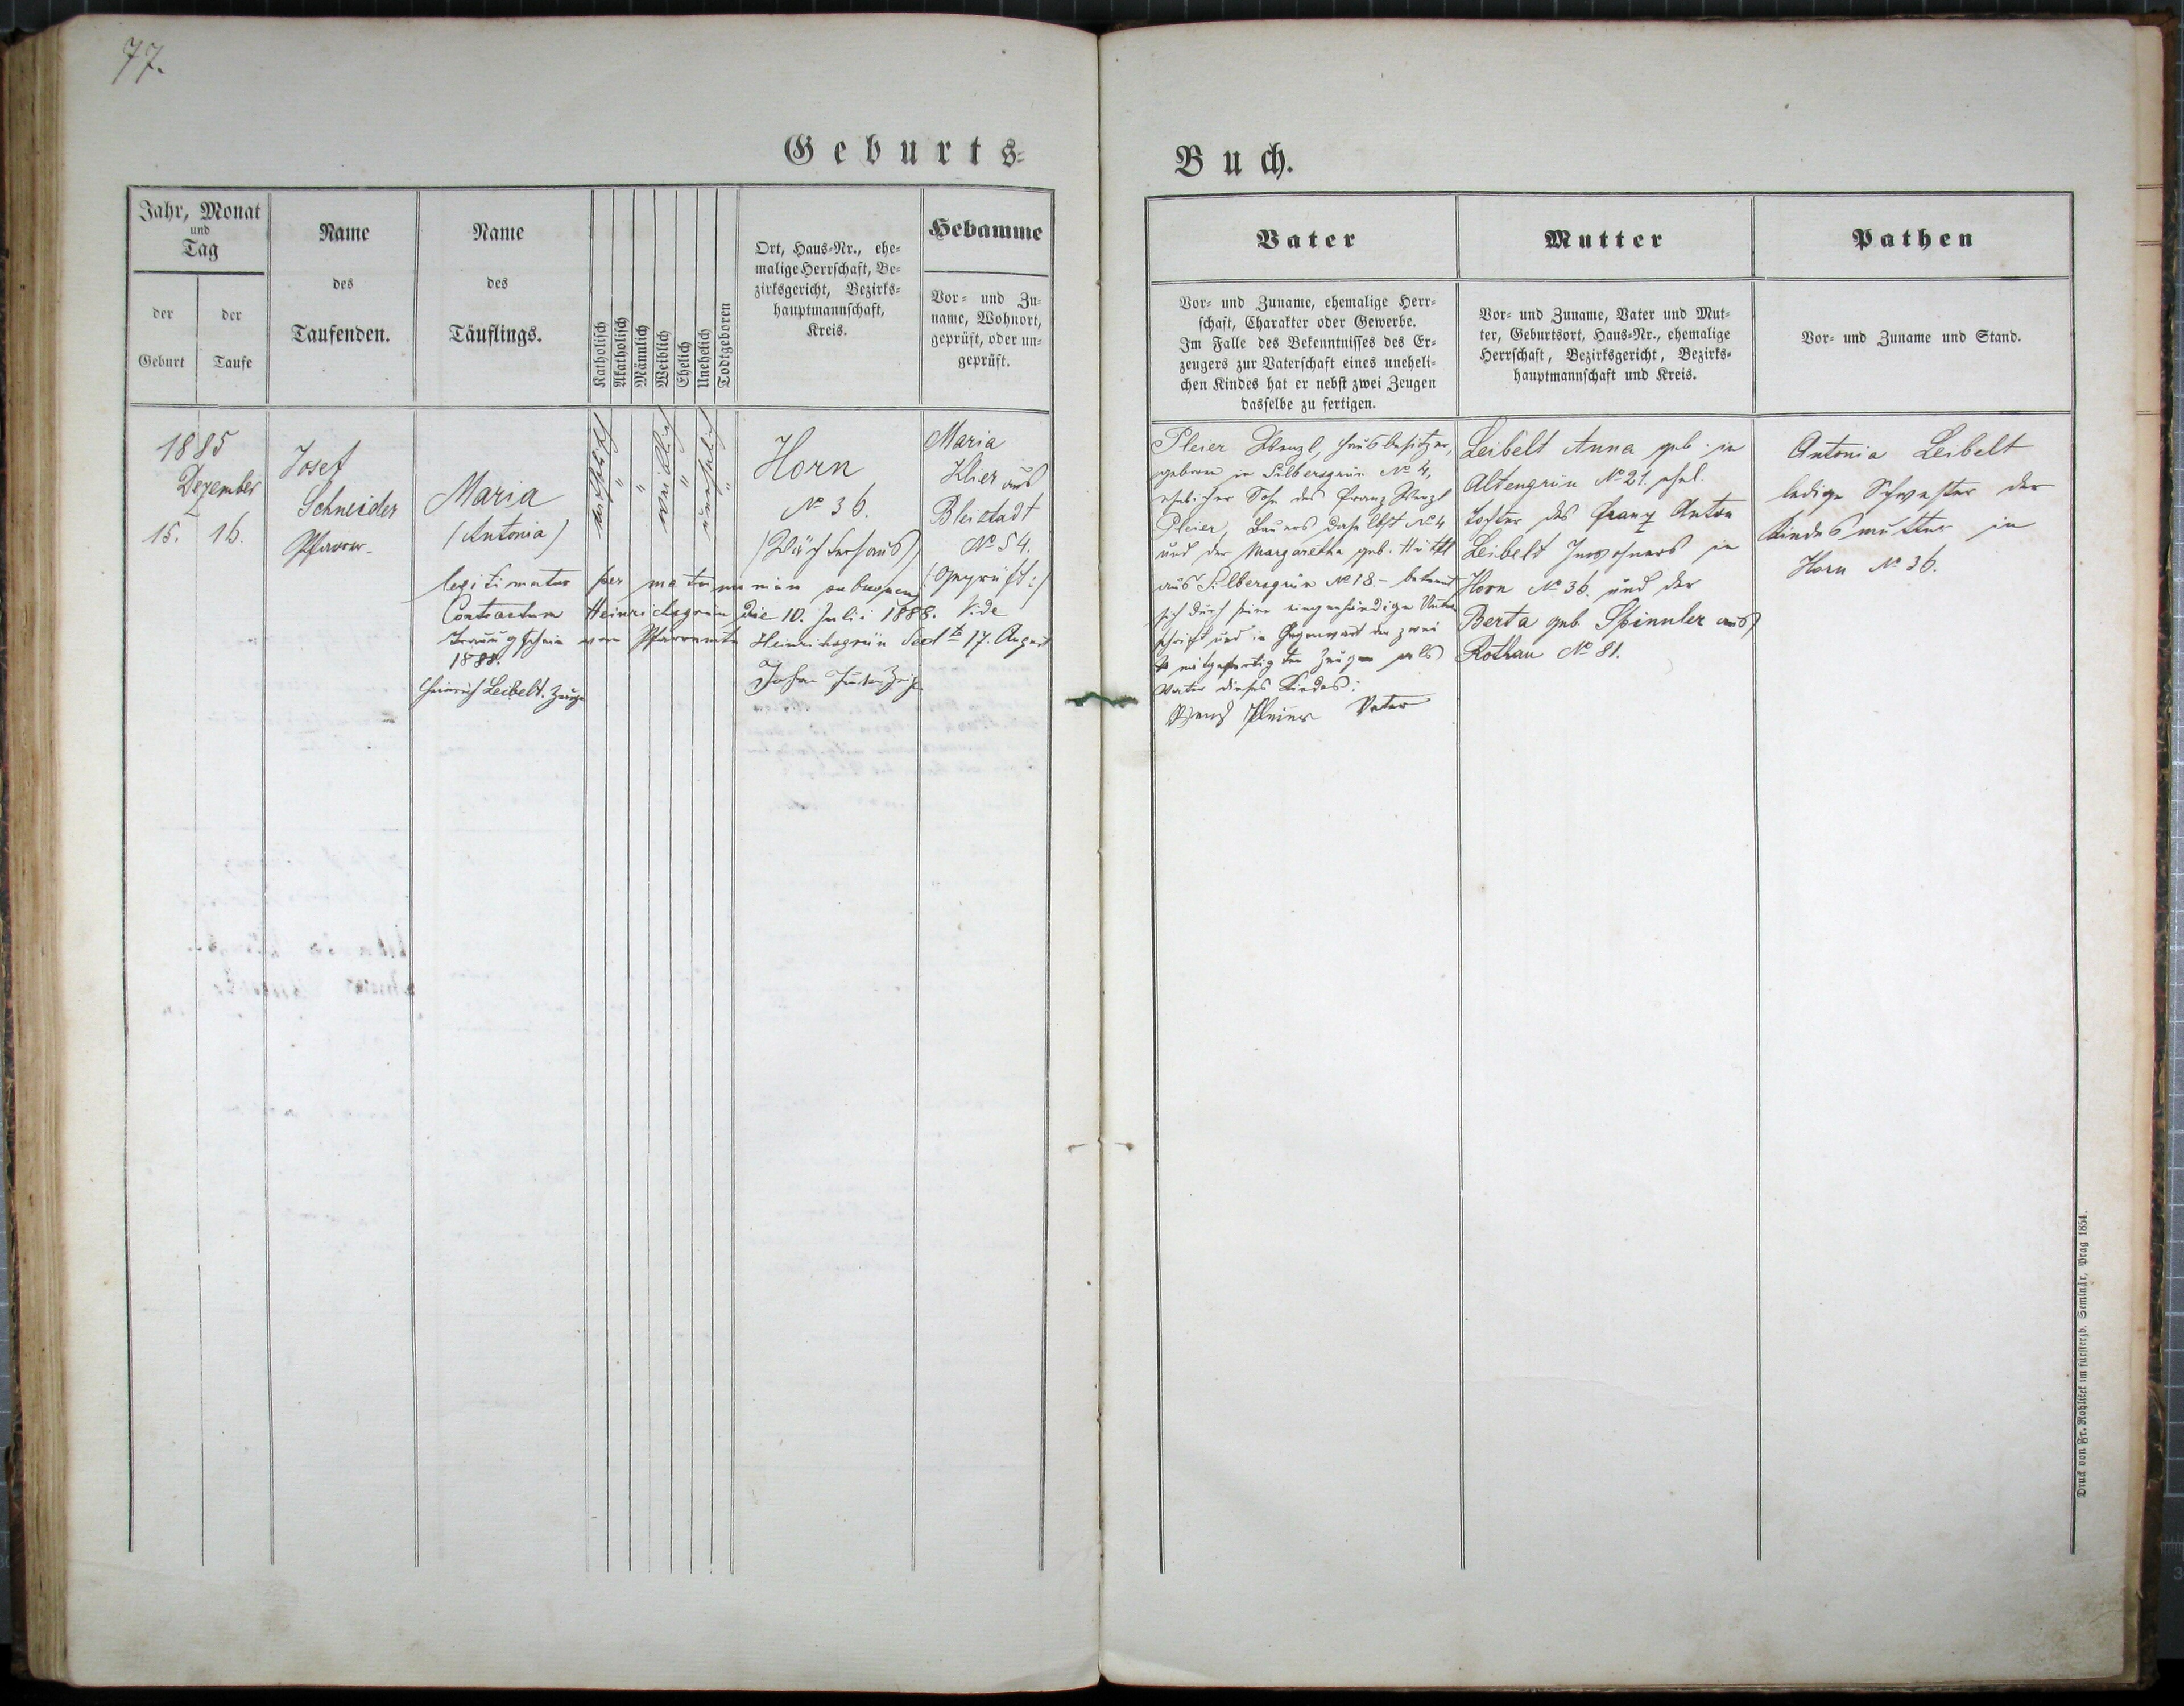 77.
Geburts-
Buch.
Jahr, Monat
und
Tag
der
Geburt
der
Taufe
Name
des
Taufenden.
Name
des
Täuflings.
Katholisch
Akatholisch
Männlich
Weiblich
Ehelich
Unehelich
Todtgeboren
Ort, Haus-Nr., ehe-
malige Herrschaft, Be-
zirksgericht, Bezirks-
hauptmannschaft,
Kreis.
Hebamme
Vor- und Zu-
name, Wohnort,
geprüft, oder un-
geprüft.
1885
Dezember
15. 16.
Josef
Schneider
Pfarrer
Maria
(Antonia)
katholisch
"
"
weiblich
"
unehelich
"
Horn
No 36.
(Wächterhaus)
Maria
Klier aus
Bleistadt
No 54.
(:geprüft:)
legitimata per matrimonium subsequens
Contractum Heinrichsgrün die 10. Julii 1888. Vide
Trauungsschein vom Pfarramte Heinrichsgrün ddt 17. August
1888.
Heinrich Leibelt. Zeuge
Johan Zeuge
Vater
Vor- und Zuname, ehemalige Herr-
schaft, Charakter oder Gewerbe.
Im Falle des Bekenntnisses des Er-
zeugers zur Vaterschaft eines uneheli-
chen Kindes hat er nebst zwei Zeugen
dasselbe zu fertigen.
Mutter
Vor- und Zuname, Vater und Mut-
ter, Geburtsort, Haus-Nr., ehemalige
Herrschaft, Bezirksgericht, Bezirks-
hauptmannschaft und Kreis.
Pathen
Vor- und Zuname und Stand.
Pleier Wenzl, Hausbesitzer,
geboren in Silbersgrün No 4,
ehelicher Sohn des Franz Wenzl
Pleier, Bauers daselbst No 4
und der Margaretha geb. Hüttl
aus Silbersgrün No 18 - bekennt
sich durch seine eigenhändige Unter
schrift und in Gegenwart der zwei
mitgefertigten Zeugen als
Vater dieses Kindes:
Wenzl Pleier Vater
Leibelt Anna geb. in
Altengrün No 21. ehel.
Tochter des Franz Anton
Leibelt Inwohners in
Horn No 36. und der
Berta geb. Spinnler aus
Rothau No 81.
Antonia Leibelt
ledige Schwester der
Kindesmutter in
Horn No 36.
Druck von Fr. Rohliček im fürsterzb. Seminär, Prag 1854.